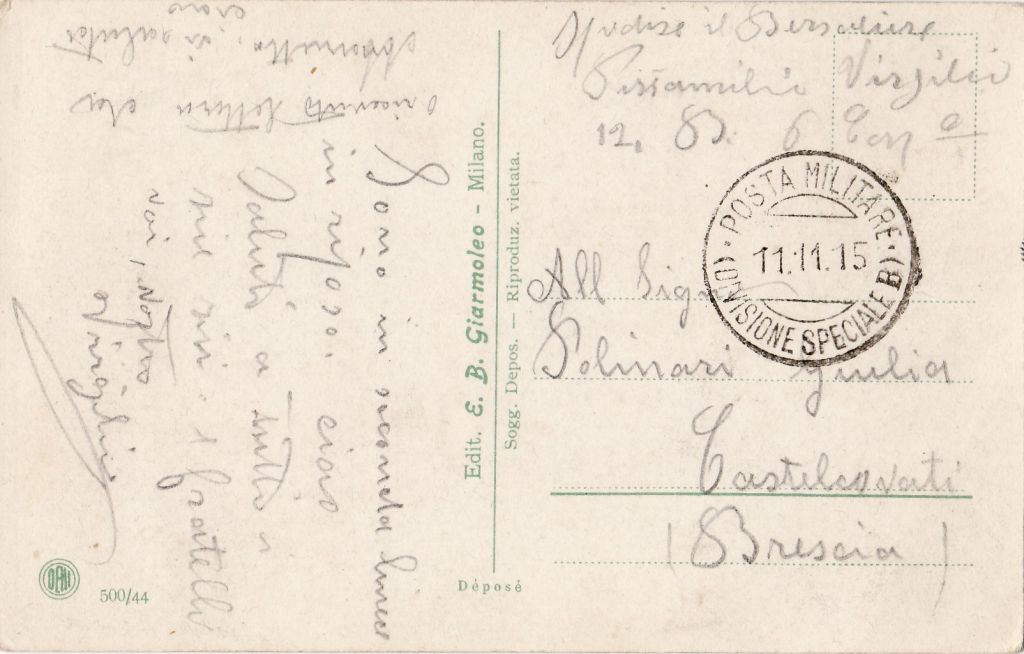 Spedisce il Bersagliere
Virgilio
12, B. 6 Comp a
POSTA MILITARE
11.11.15
(DIVISIONE SPECIALE B)
All Sig
Polinari Giulia
Castelcovati
(Brescia)
Edit. E. B. Giarmoleo - Milano.
Sogg. Depos. — Riproduz. vietata.
Déposé
500/44
Sono in seconda linea
in riposo. ciao
Saluti a tutti i
miei fratelli
voi, vostro
Virgilio
ò ricevuto lettera che
si saluta
ciao